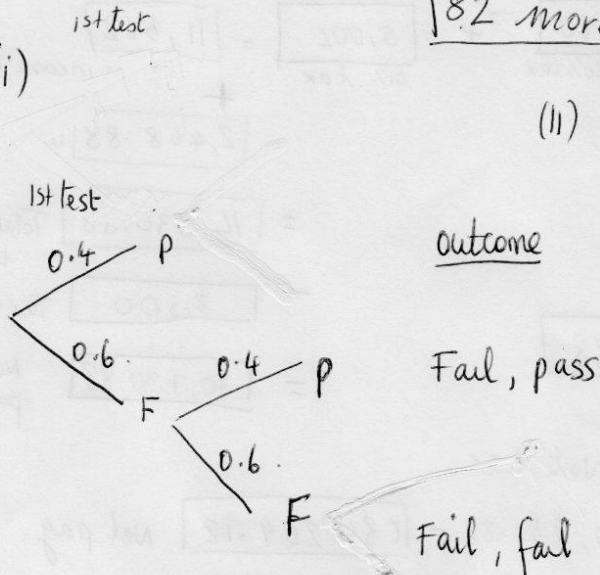 1st test
82 mor
i)
(ii)
1st test
0.4 P
outcome
0.6
F
0.4 P
Fail, pass
0.6
F
Fail, fail